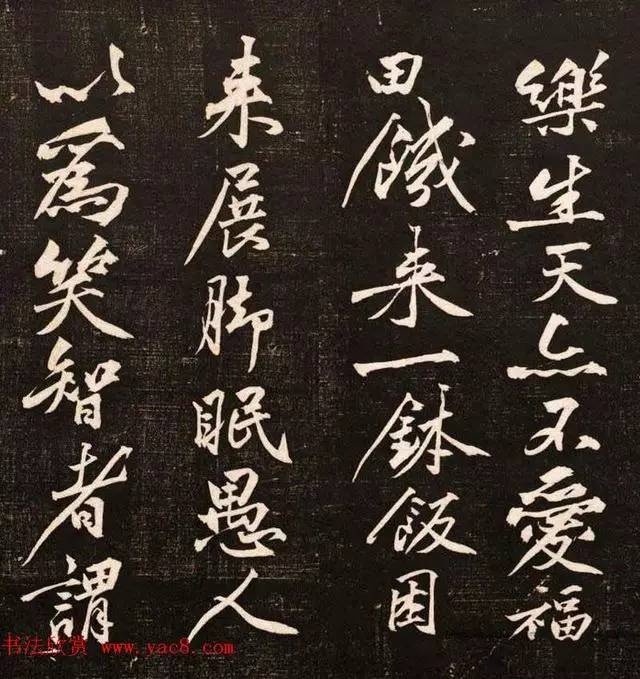 樂生天亦不愛福
田饑来一鉢飯困
来展脚眠愚人
以爲笑智者謂
书法欣赏 www.yac8.com